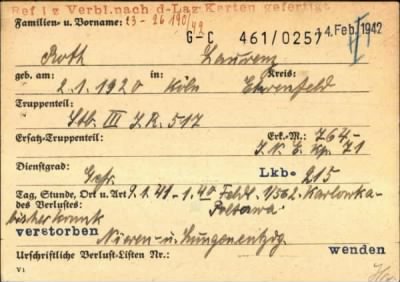 Ref I z Verbl.nach d-Laz Karten gefertigt
Familien- u. Vorname: 23-26190/42
G-C 461/0257 14.Feb.1942
Roth Laurenz
geb. am: in: Kreis:
2.1.1920 Köln Ehrenfeld
Truppenteil:
Stb. III J.R. 517
Ersatz-Truppenteil: Erk.-M.: 764-
J.N.E. Kp. 71
Dienstgrad: Lkb- 215
Gefr.
Tag, Stunde, Ort u. Art 9.1.41 - 1.40 Feldl. 1/562. Karlowka-
des Verlustes: Poltawa
bisher krank
verstorben Nieren- u. Lungenentzdg.
Urschriftliche Verlust-Listen Nr.: wenden
V1